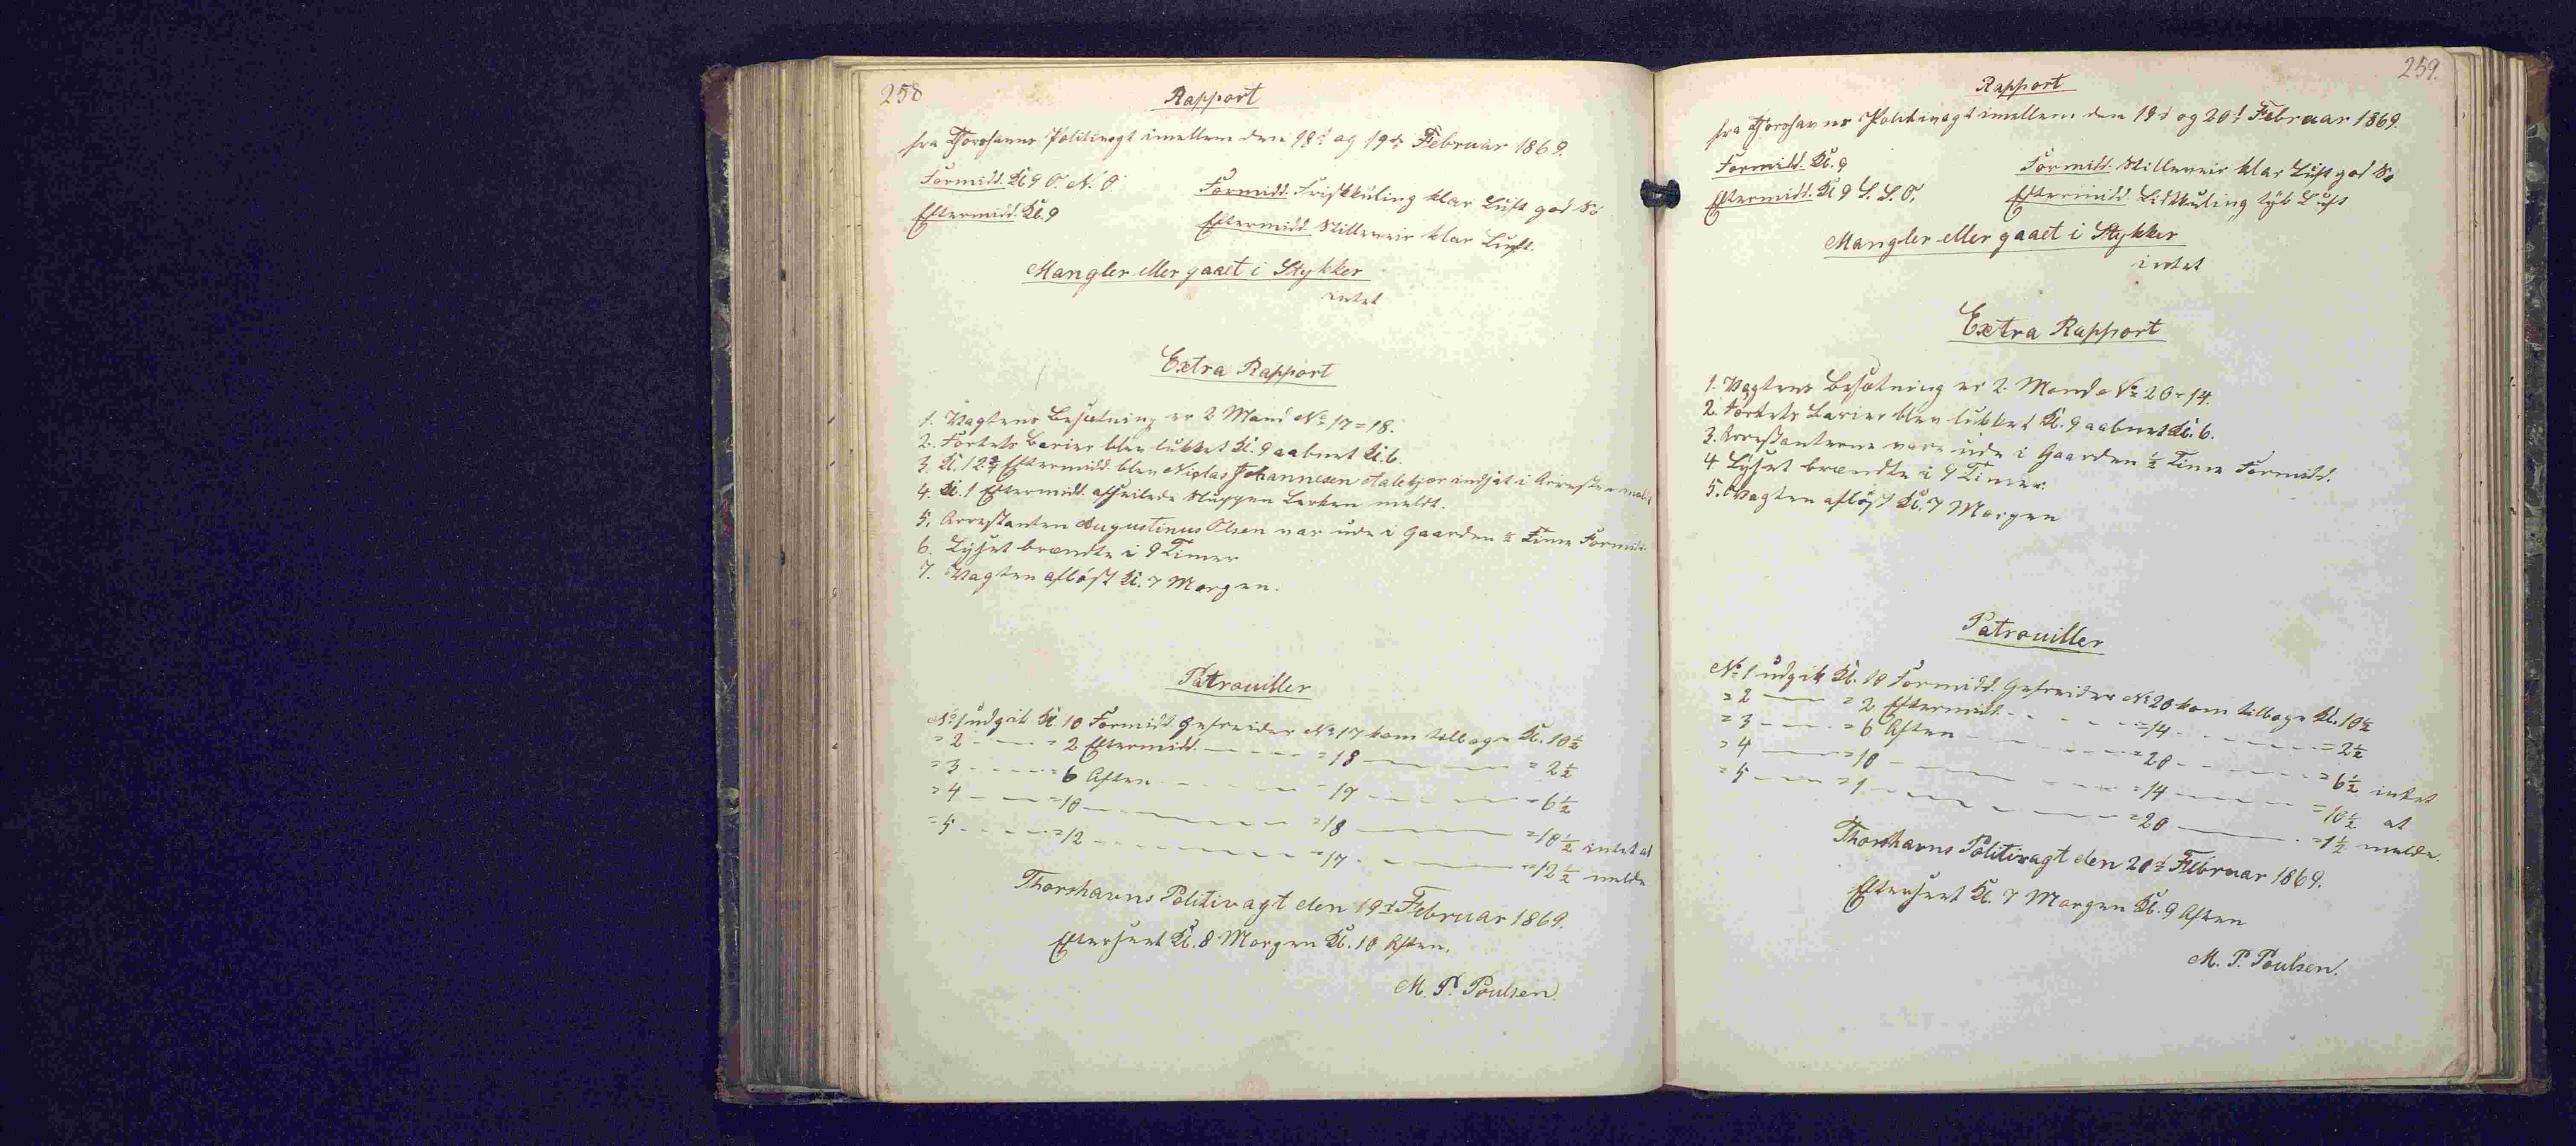 258
Rapport
fra Thorshavns Politivagt imellem den 18d og 19d Februar 1869.
Formidd. Kl. 9 O. N. O.
Formidd. Friskkuling klar Luft god Sö
Eftermidd. Kl. 9
Eftermidd. Stilleveir klar Luft.
Mangler eller gaaet i Stykker
intet
Extra Rapport
1. Vagtens Besætning er 2 Mand No 17 = 18.
2. Fortets Barier blev lukket Kl. 9 aabnet Kl. 6.
3. Kl. 12 Eftermidd. blev Niclas Johannesen indsat i Arresten
4. Kl. 1 Eftermidd. afseilede Sluppen Lerken meldt.
5. Arrestanten Augustinus Olsen var ude i Gaarden ½ Time Formidd.
6. Lyset brændte i 9 Timer
7. Vagten aflöst Kl. 7 Morgen.
Patrouiller
No 1 udgik Kl. 10 Formidd. Gefreider No 17 kom tilbage Kl. 10½
= 2 — = 2 Eftermidd. — = 18 — = 2½
= 3 — = 6 Aften — = 17 — = 6½
= 4 — = 10 — = 18 — = 10½ intet at
= 5 — = 12 — = 17 — = 12½ melde
Thorshavns Politivagt den 19d Februar 1869.
Efterseet Kl. 8 Morgen Kl. 10 Aften.
M. P. Poulsen.
259.
Rapport
fra Thorshavns Politivagt imellem den 19d og 20d Februar 1869.
Formidd. Kl. 9
Formidd. Stilleveir klar Luft god Sö
Eftermidd. Kl. 9 S. S. O.
Eftermidd. Lidtkuling tyk Luft
Mangler eller gaaet i Stykker
intet
Extra Rapport
1. Vagtens Besætning er 2. Mand No 20 = 14.
2. Fortets Barier blev lukket Kl. 9 aabnet Kl. 6.
3. Arrestanterne vare ude i Gaarden ½ Time Formidd.
4. Lyset brændte i 9 Timer.
5. Vagten aflöst Kl. 7 Morgen
Patrouiller
No 1 udgik Kl. 10 Formidd. Gefreider No 20 kom tilbage Kl. 10½
= 2 — = 2 Eftermidd. — = 14 — = 2½
= 3 — = 6 Aften — = 20 — = 6½ intet
= 4 — = 10 — = 14 — = 10½ at
= 5 — = 1 — = 20 — = 1½ melde.
Thorshavns Politivagt den 20d Februar 1869.
Efterseet Kl. 7 Morgen Kl. 9 Aften
M. P. Poulsen.